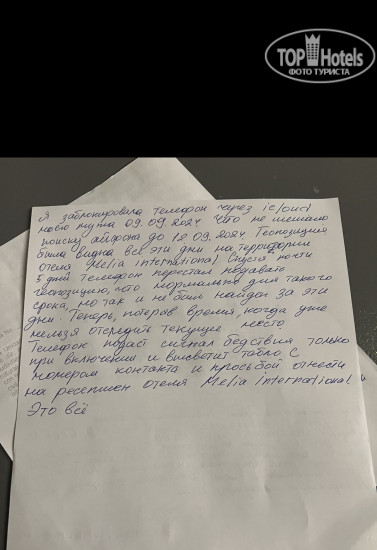 TOP Hotels
ФОТО ТУРИСТА
Я заблокировала телефон через icloud
09.09.2024 что не мешало
поиску айфона до 12.09.2024 Геопозиция
была видна все эти дни на территории
отеля Melia international Спустя почти
5 дней телефон перестал подавать
геопозицию, что нормально для такого
срока, но так и не был найден за эти
дни. Теперь, потеряв время, когда уже
нельзя отследить текущие место
Телефон подаст сигнал бедствия только
при включении и высветит табло. С
номером контакта и просьбой отнести
на ресепшен отеля Melia International
Это всё